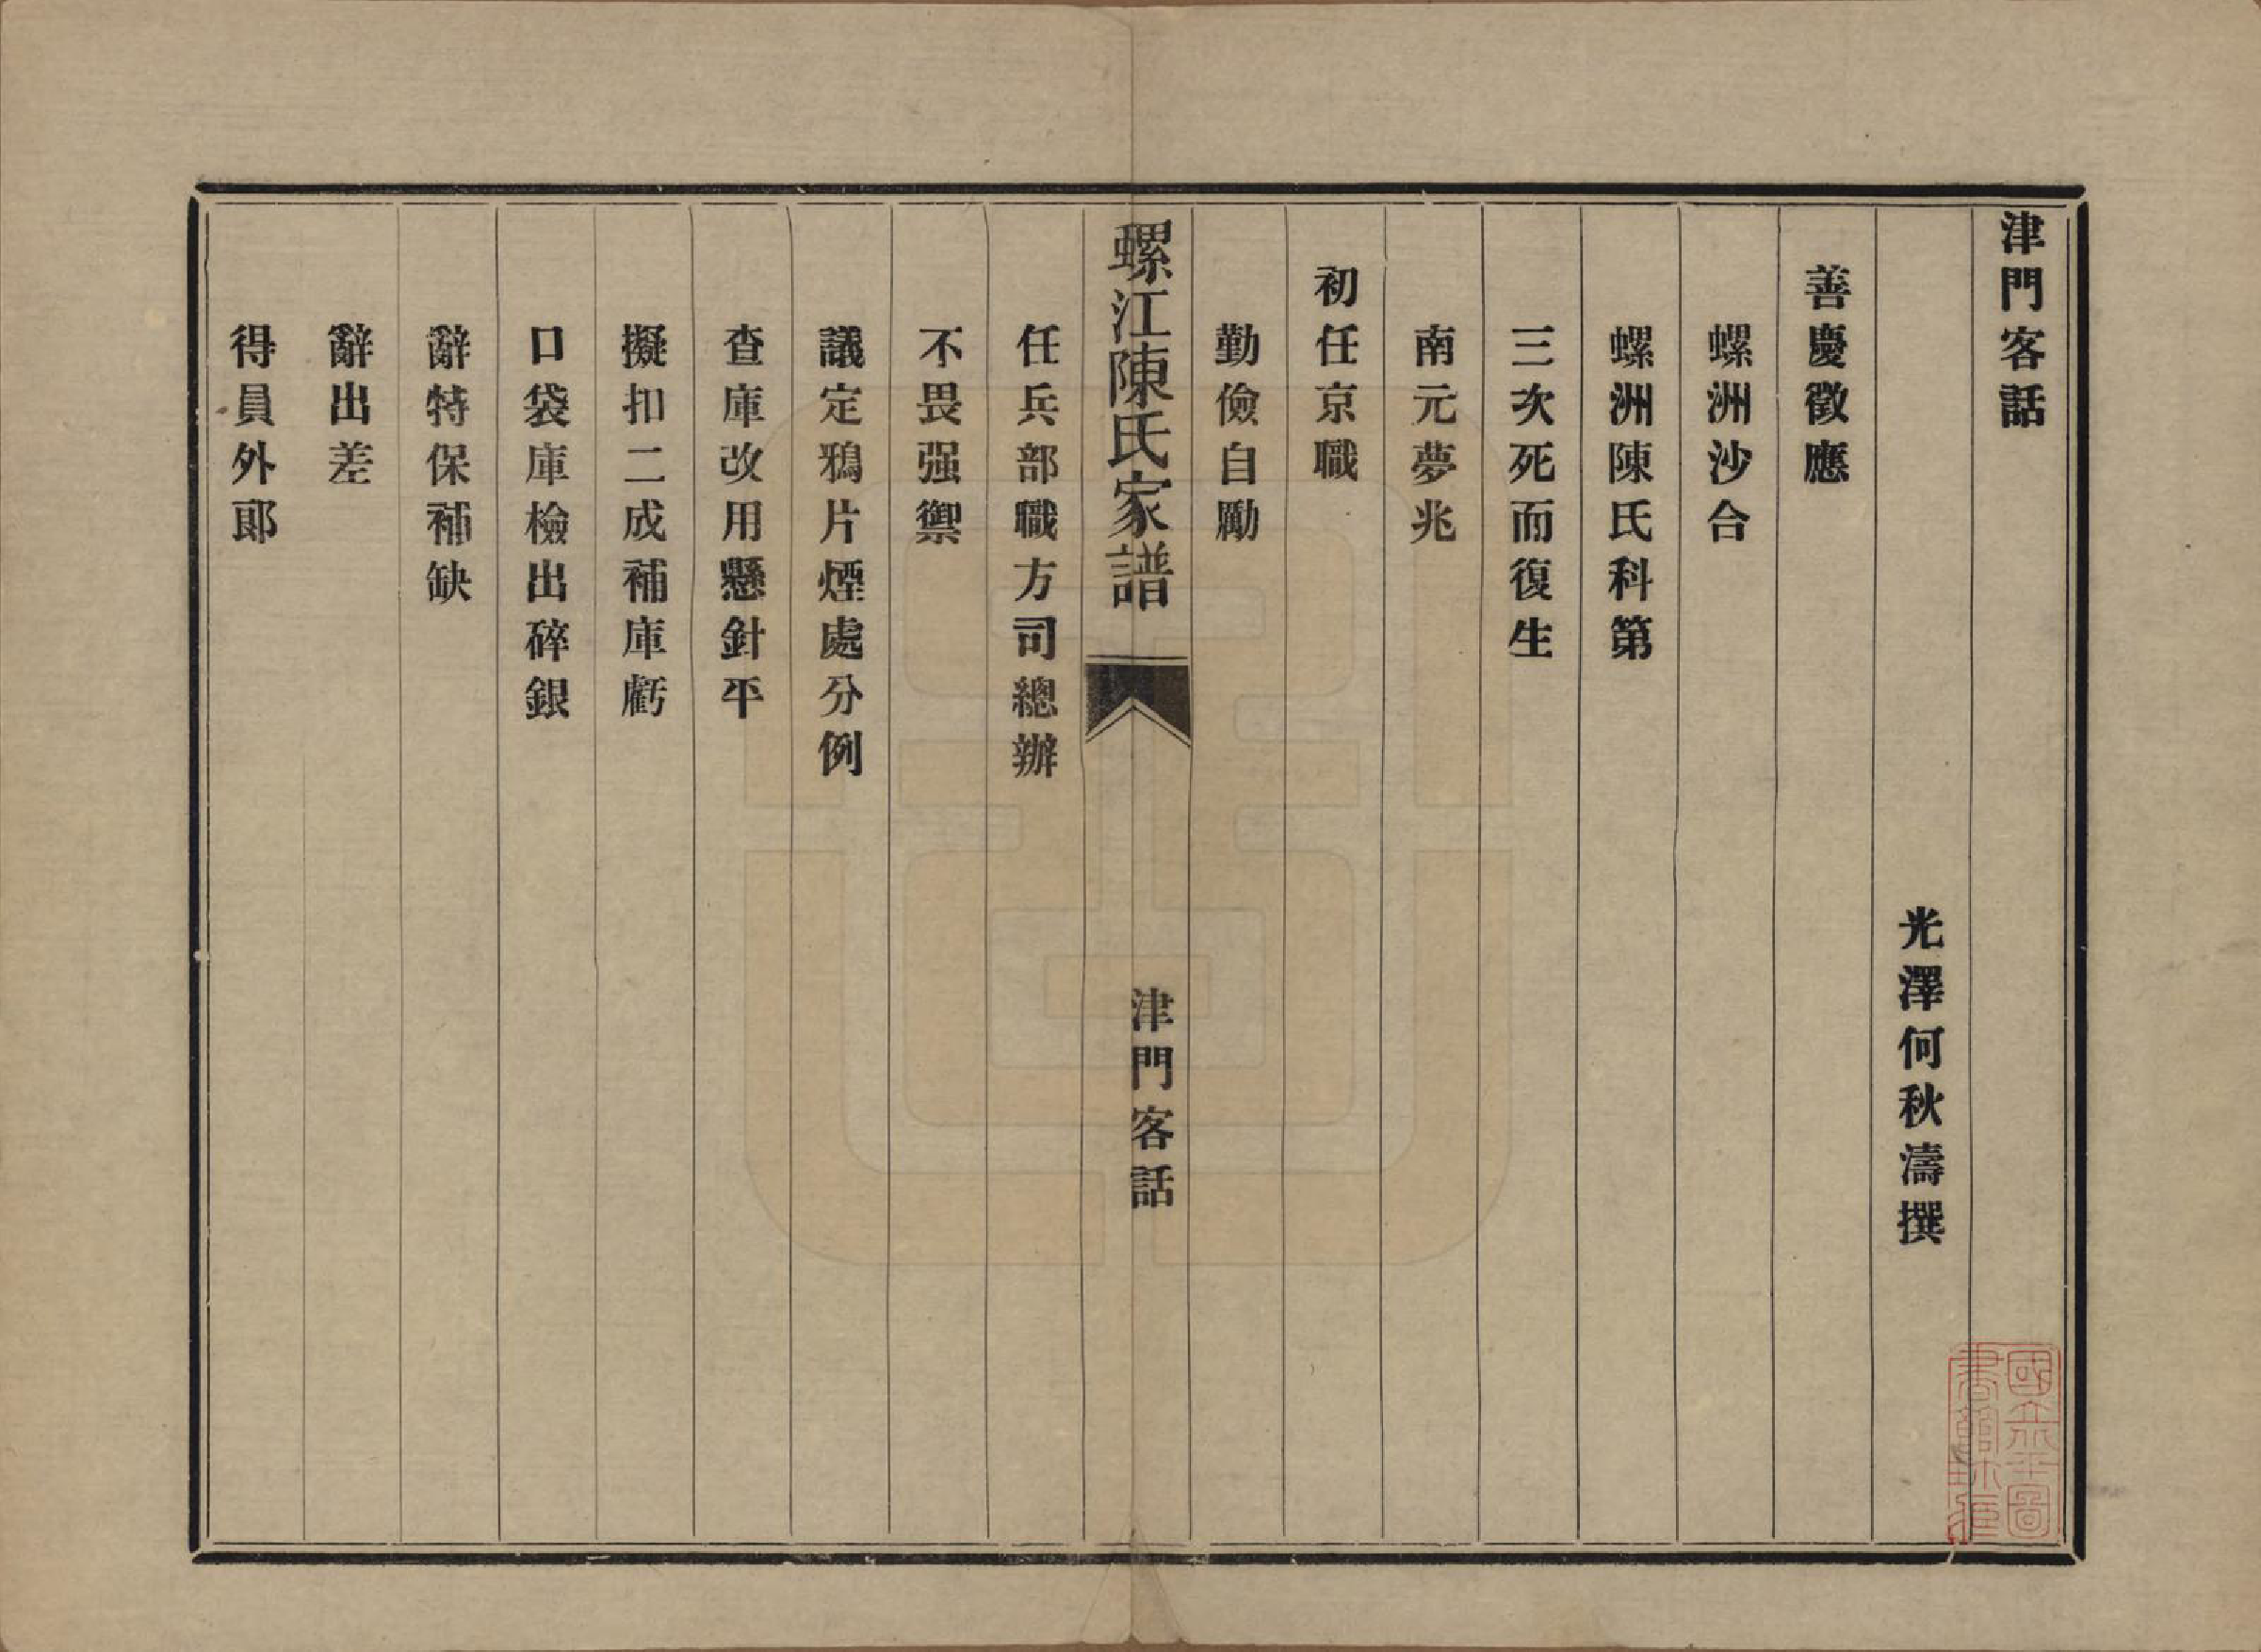 津門客話
光澤何秋濤撰
善慶徵應
螺洲沙合
螺洲陳氏科第
三次死而復生
南元夢兆
初任京職
勤儉自勵
螺江陳氏家譜
津門客話
任兵部職方司總辦
不畏强禦
議定鴉片煙處分例
查庫改用懸針平
擬扣二成補庫虧
口袋庫檢出碎銀
辭特保補缺
辭出差
得員外郎
國立北平圖
書館珍藏